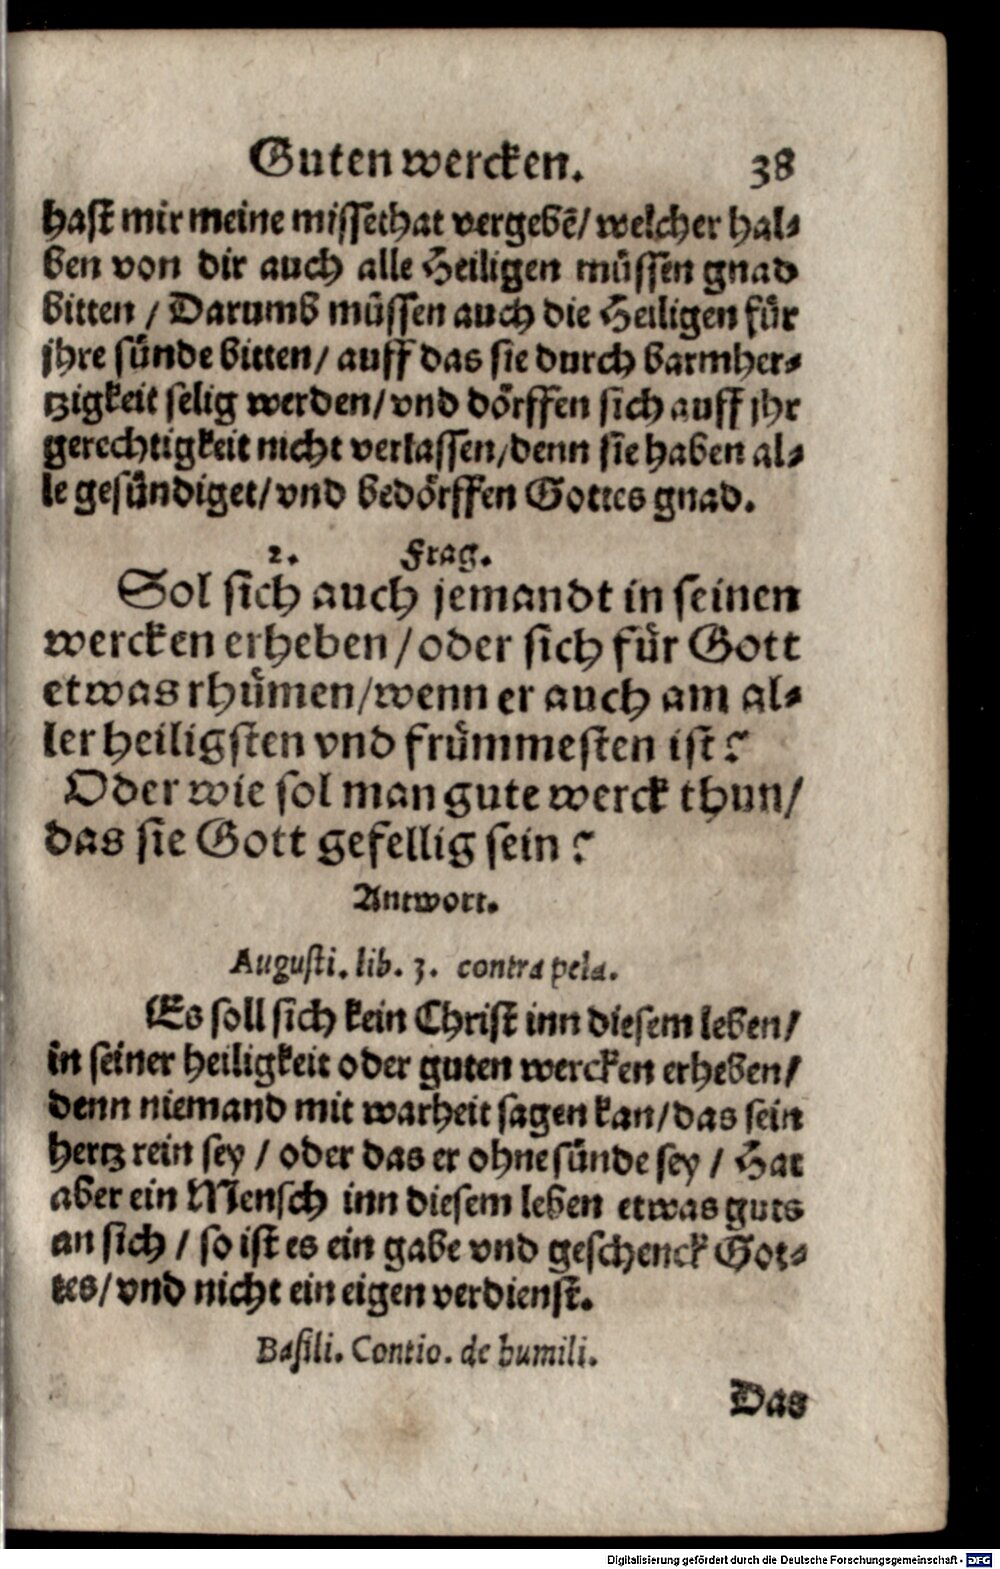 Guten wercken. 38
hast mir meine missethat vergebē/ welcher hal-
ben von dir auch alle Heiligen müssen gnad
bitten / Darumb müssen auch die Heiligen für
jhre sünde bitten/ auff das sie durch barmher-
tzigkeit selig werden/ vnd dörffen sich auff jhr
gerechtigkeit nicht verlassen/denn sie haben al-
le gesündiget/ vnd bedörffen Gottes gnad.
2. Frag.
Sol sich auch jemandt in seinen
wercken erheben / oder sich für Gott
etwas rhümen/wenn er auch am al-
ler heiligsten vnd frümmesten ist?
Oder wie sol man gute werck thun/
das sie Gott gefellig sein?
Antwort.
Augusti. lib. 3. contra pela.
Es soll sich kein Christ inn diesem leben/
in seiner heiligkeit oder guten wercken erheben/
denn niemand mit warheit sagen kan/das sein
hertz rein sey / oder das er ohne sünde sey / Hat
aber ein Mensch inn diesem leben etwas guts
an sich / so ist es ein gabe vnd geschenck Got-
tes/ vnd nicht ein eigen verdienst.
Basili. Contio. de humili.
Das
Digitalisierung gefördert durch die Deutsche Forschungsgemeinschaft - DFG